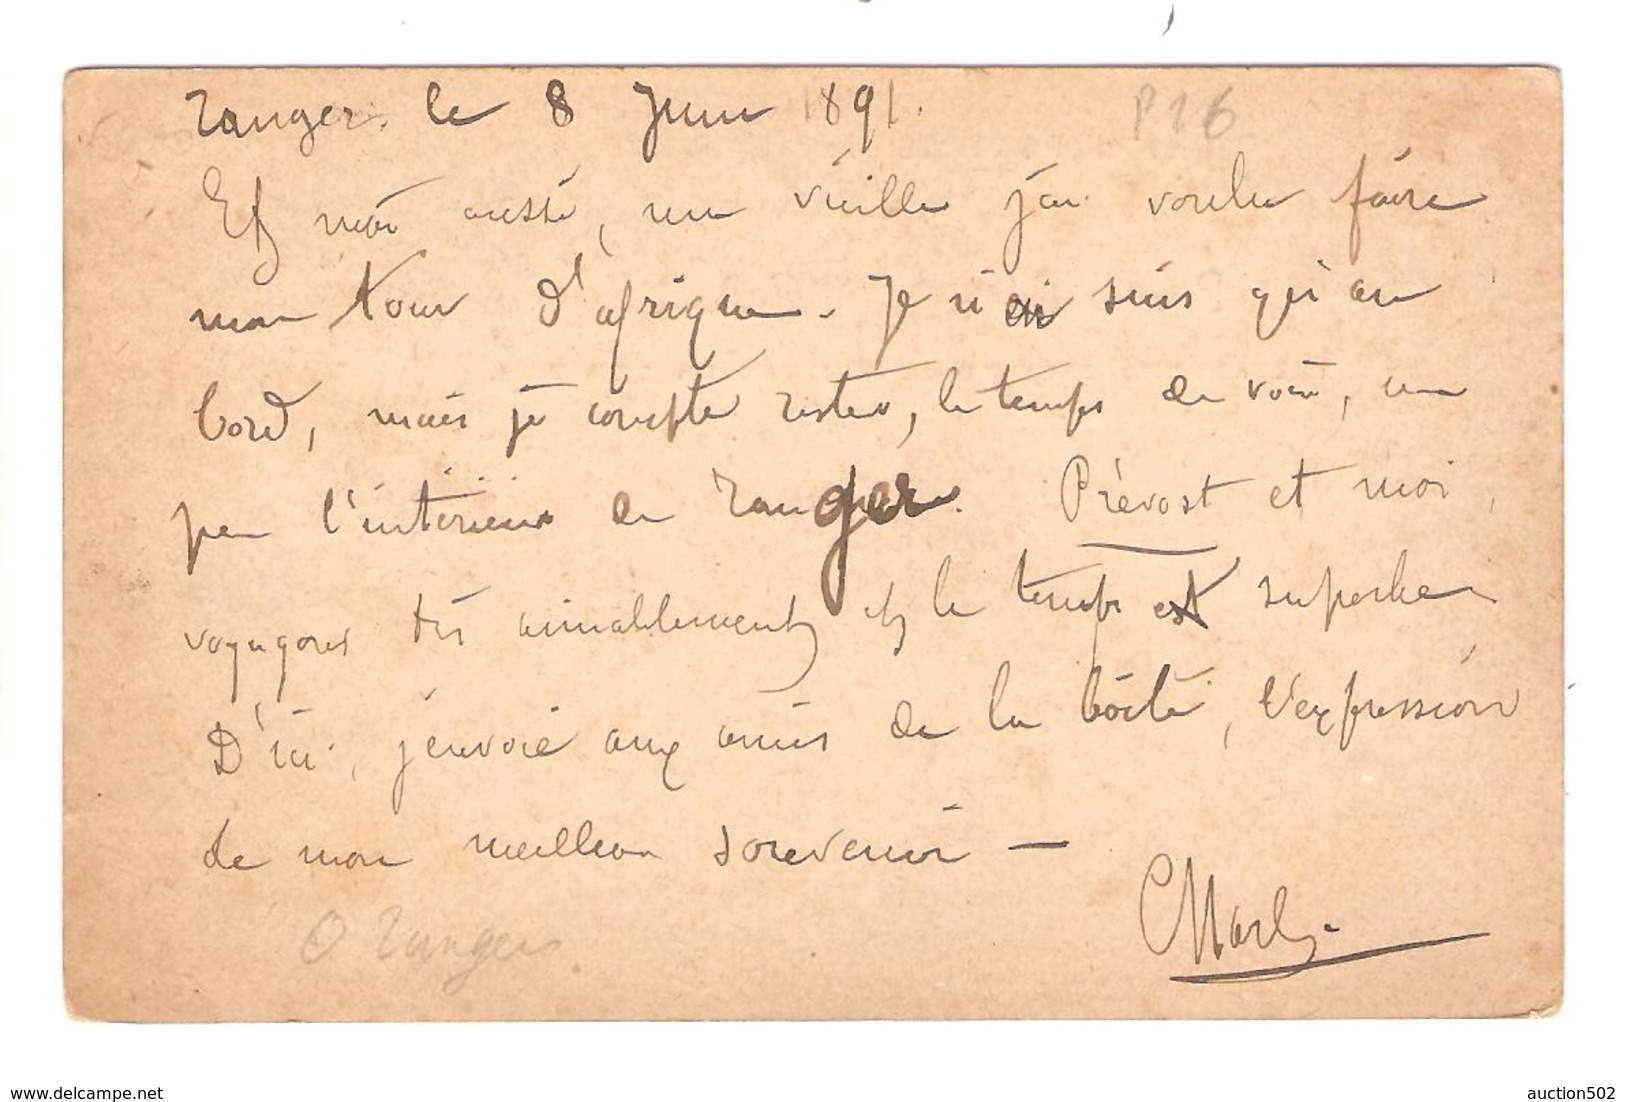 Tanger. le 8 Juin 1891.
P16
Et moi aussi, ma vieille j'ai voulu faire
mon tour d'afrique. Je n'en suis qu'au
bord, mais je compte rester, le temps de voir, un
peu l'intérieur de Tanger. Prévost et moi,
voyageons très aimablement et le temps est superbe.
D'ici, j'envoie aux amis de la boîte, l'expression
de mon meilleur souvenir —
O Tanger
www.delcampe.net
auction502